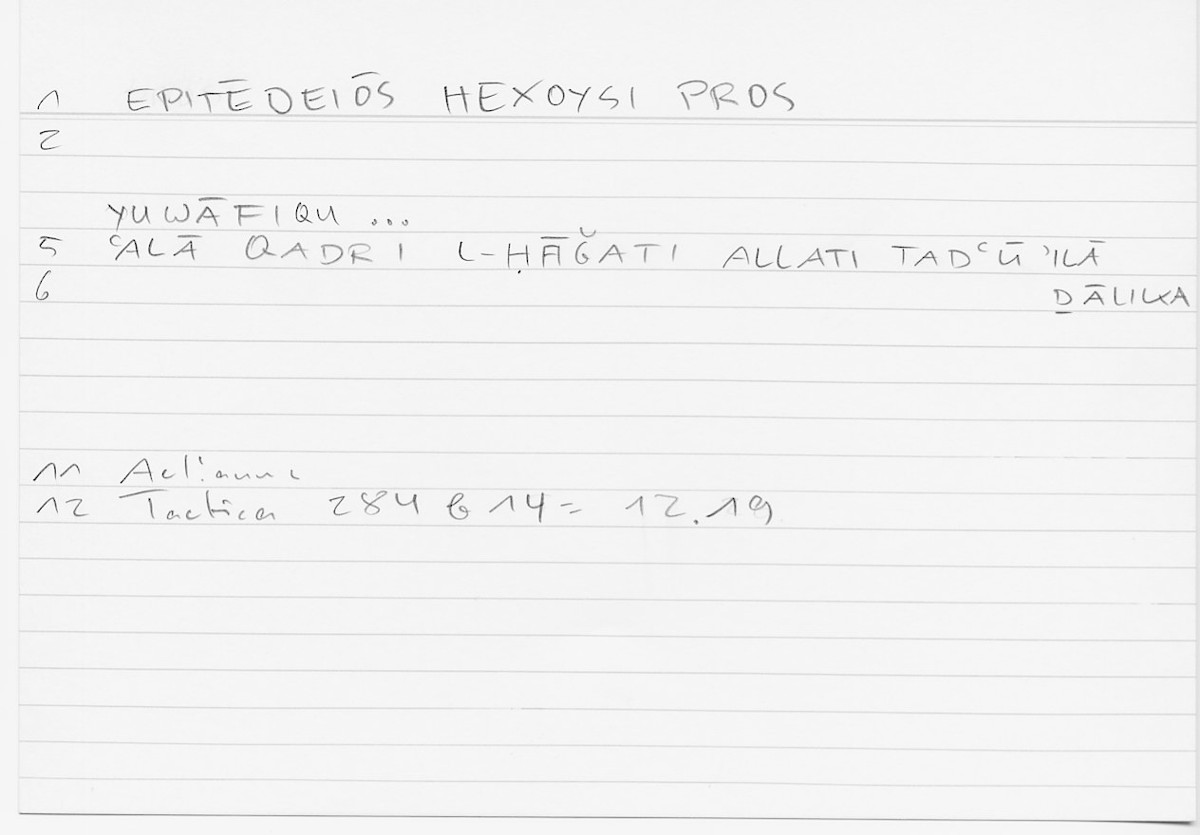 1 EPITĒDEIŌS HEXOYSI PROS
2
YUWĀFIQU ...
5 ʿALĀ QADRI L-ḤĀǦATI ALLATI TADʿŪ ʾILĀ
6 ḎĀLIKA
11 Aelianus
12 Tactica 284 b 14 = 12.19